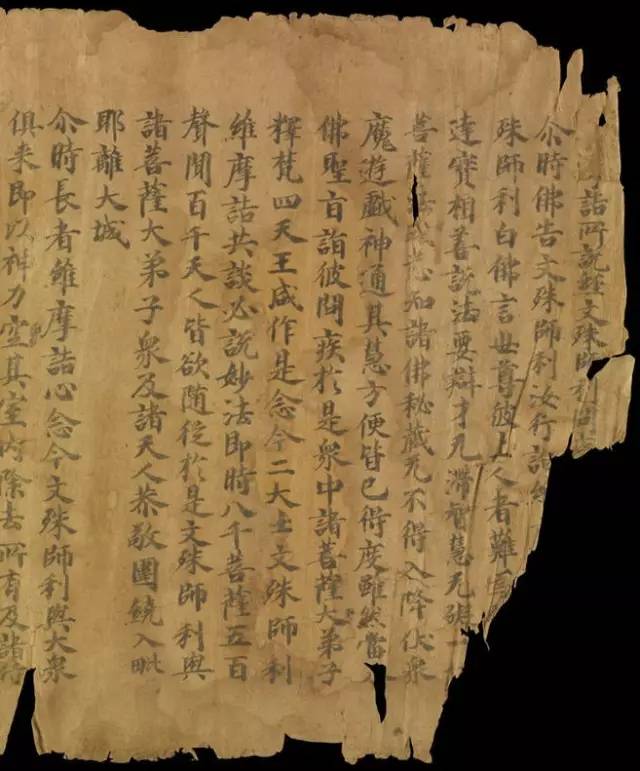 詰所說經文殊師利問
尒時佛告文殊師利汝行詣
殊師利白佛言世尊彼上人者難
達實相善說法要辯才无滯智慧无礙一
菩薩悉知諸佛秘藏无不得入降伏衆
魔遊戲神通其慧方便皆已得度雖然當
佛聖旨詣彼問疾於是衆中諸菩薩大弟子
釋梵四天王咸作是念今二大士文殊師利
維摩詰共談必說妙法即時八千菩薩五百
聲聞百千天人皆欲隨從於是文殊師利與
諸菩薩大弟子衆及諸天人恭敬圍繞入毗
耶離大城
尒時長者維摩詰心念今文殊師利與大衆
俱來即以神力空其室內除去所有及諸侍